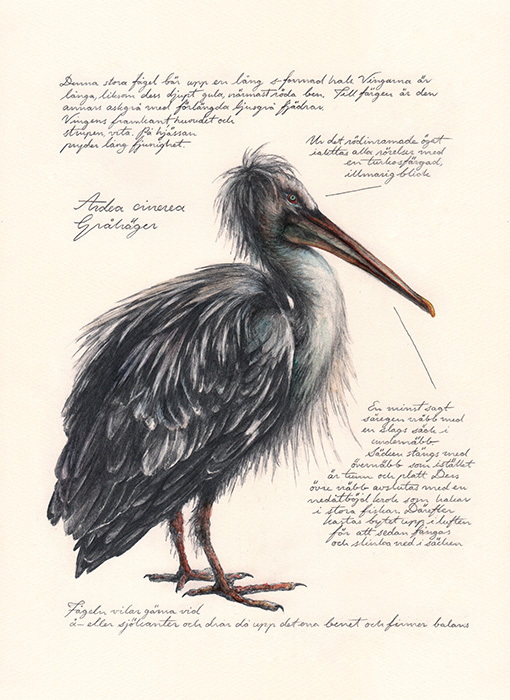 Denna stora fågel bär upp en lång s-formad hals. Vingarna är
långa, liksom dess djupt gula, närmast röda ben. Till färgen är den
annars askgrå med förlängda ljusgrå fjädrar.
Vingens framkant huvudet och
strupen, vita. På hjässan
pryder lång fjunighet.
Ur det rödinramade ögat
iakttas alla rörelser med
en turkosfärgad,
illmarig blick
Ardea cinerea
Gråhäger
En minst sagt
säregen näbb med
en slags säck i
undernäbb
Säcken stängs med
övernäbb som istället
är tunn och platt. Dess
övre näbb avslutas med en
nedåtböjd krok som hakar
i stora fiskar. Därefter
kastas bytet upp i luften
för att sedan fångas
och slinka ned i säcken
Fågeln vilar gärna vid
å- eller sjökanter och drar då upp det ena benet och finner balans